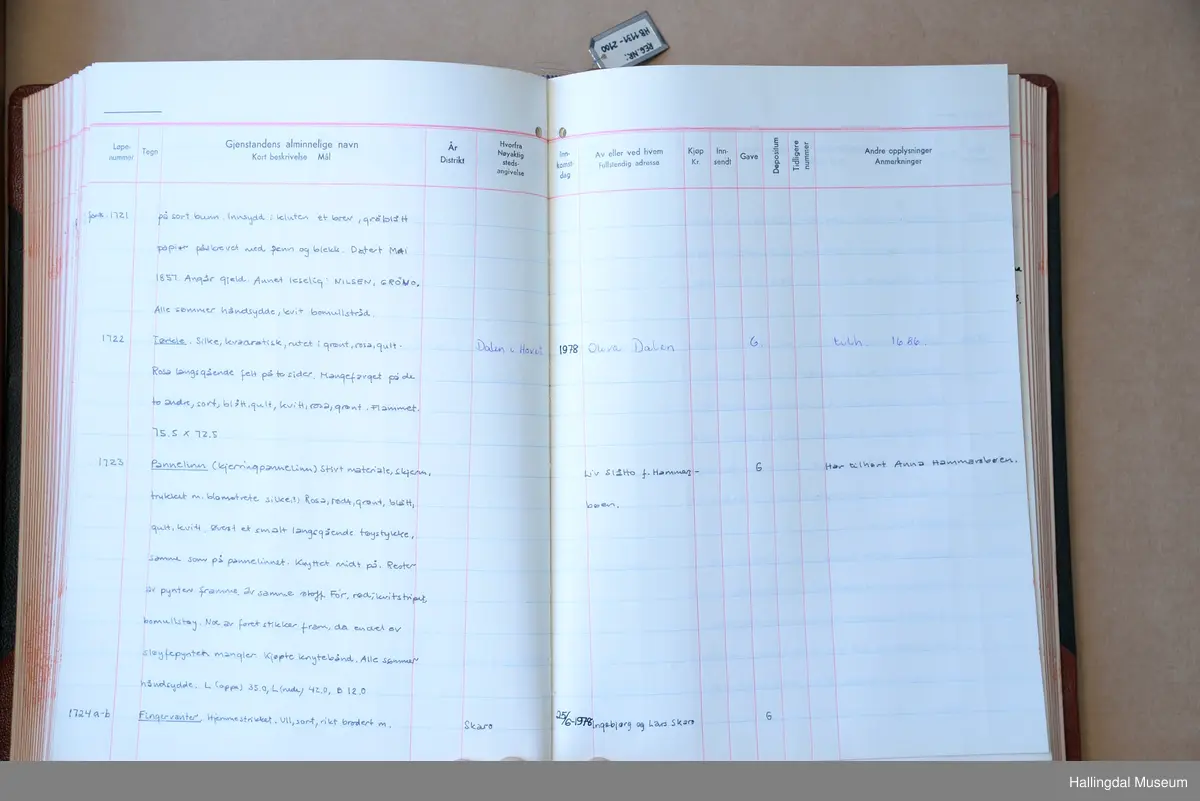 REG. NR:
HB 1131 - 2100
Løpe-nummer
Tegn
Gjenstandens alminnelige navn
Kort beskrivelse Mål
År
Distrikt
Hvorfra
Nøyaktig
steds-
angivelse
Inn-
komst-
dag
Av eller ved hvem
Fullstendig adresse
Kjøp
Kr.
Inn-
sendt
Gave
Depositum
Tidligere
nummer
Andre opplysninger
Anmerkninger
forts. 1721 på sort bunn. Innsydd i kluten et brev, gråblått
papier påskrevet med penn og blekk. Datert Mai
1857. Angår gjeld. Annet leselig: NILSEN, GRÖNO.
Alle sømmer håndsydde, kvit bomullstråd.
1722 Tørkle. Silke, kvadratisk, rutet i grønt, rosa, gult. Dalen i Hovet 1978 Olava Dalen G. tilh. 1686.
Rosa langsgående felt på to sider. Mangefarget på de
to andre, sort, blått, gult, kvitt, rosa, grønt. Flammet.
75.5 x 72.5
1723 Pannelinn (kjerringpannelinn) Stivt materiale, skjerm, Liv Slåtto f. Hammars- G Har tilhørt Anna Hammarsbøen.
trykket m. blomstrete silke(?) Rosa, rødt, grønt, blått, bøen.
gult, kvitt. Øverst et smalt langsgående tøystykke,
samme som på pannelinnet. Knyttet midt på. Rester
av pynten framme av samme stoff. Fôr, rød/kvitstripet
bomullstøy. Noe av foret stikker fram, da endel av
sløyfepynten mangler. Kjøpte knytebånd. Alle sømmer
håndsydde. L (oppe) 35.0, L (nede) 42.0, B 12.0
1724 a-b Fingervanter. Hjemmestrikket. Ull, sort, rikt brodert m. Skaro 25/6-1978 Ingebjørg og Lars Skaro G
Hallingdal Museum